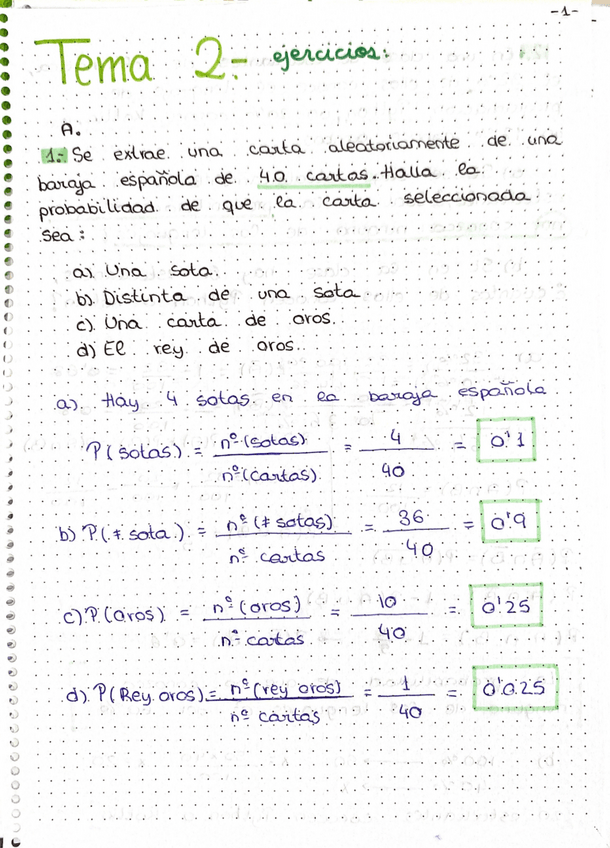 -1-
Tema 2.- ejercicios:
A.
1.- Se extrae una carta aleatoriamente de una
baraja española de 40 cartas. Halla la
probabilidad de que la carta seleccionada
sea:
a) Una sota.
b) Distinta de una sota
c) Una carta de oros.
d) El rey de oros.
a). Hay 4 sotas en la baraja española
P(sotas) = nº(sotas) / nº(cartas) = 4/40 = 0'1
b) P(≠ sota) = nº(≠ sotas) / nº cartas = 36/40 = 0'9
c) P(oros) = nº(oros) / nº cartas = 10/40 = 0'25
d) P(Rey oros) = nº(rey oros) / nº cartas = 1/40 = 0'025